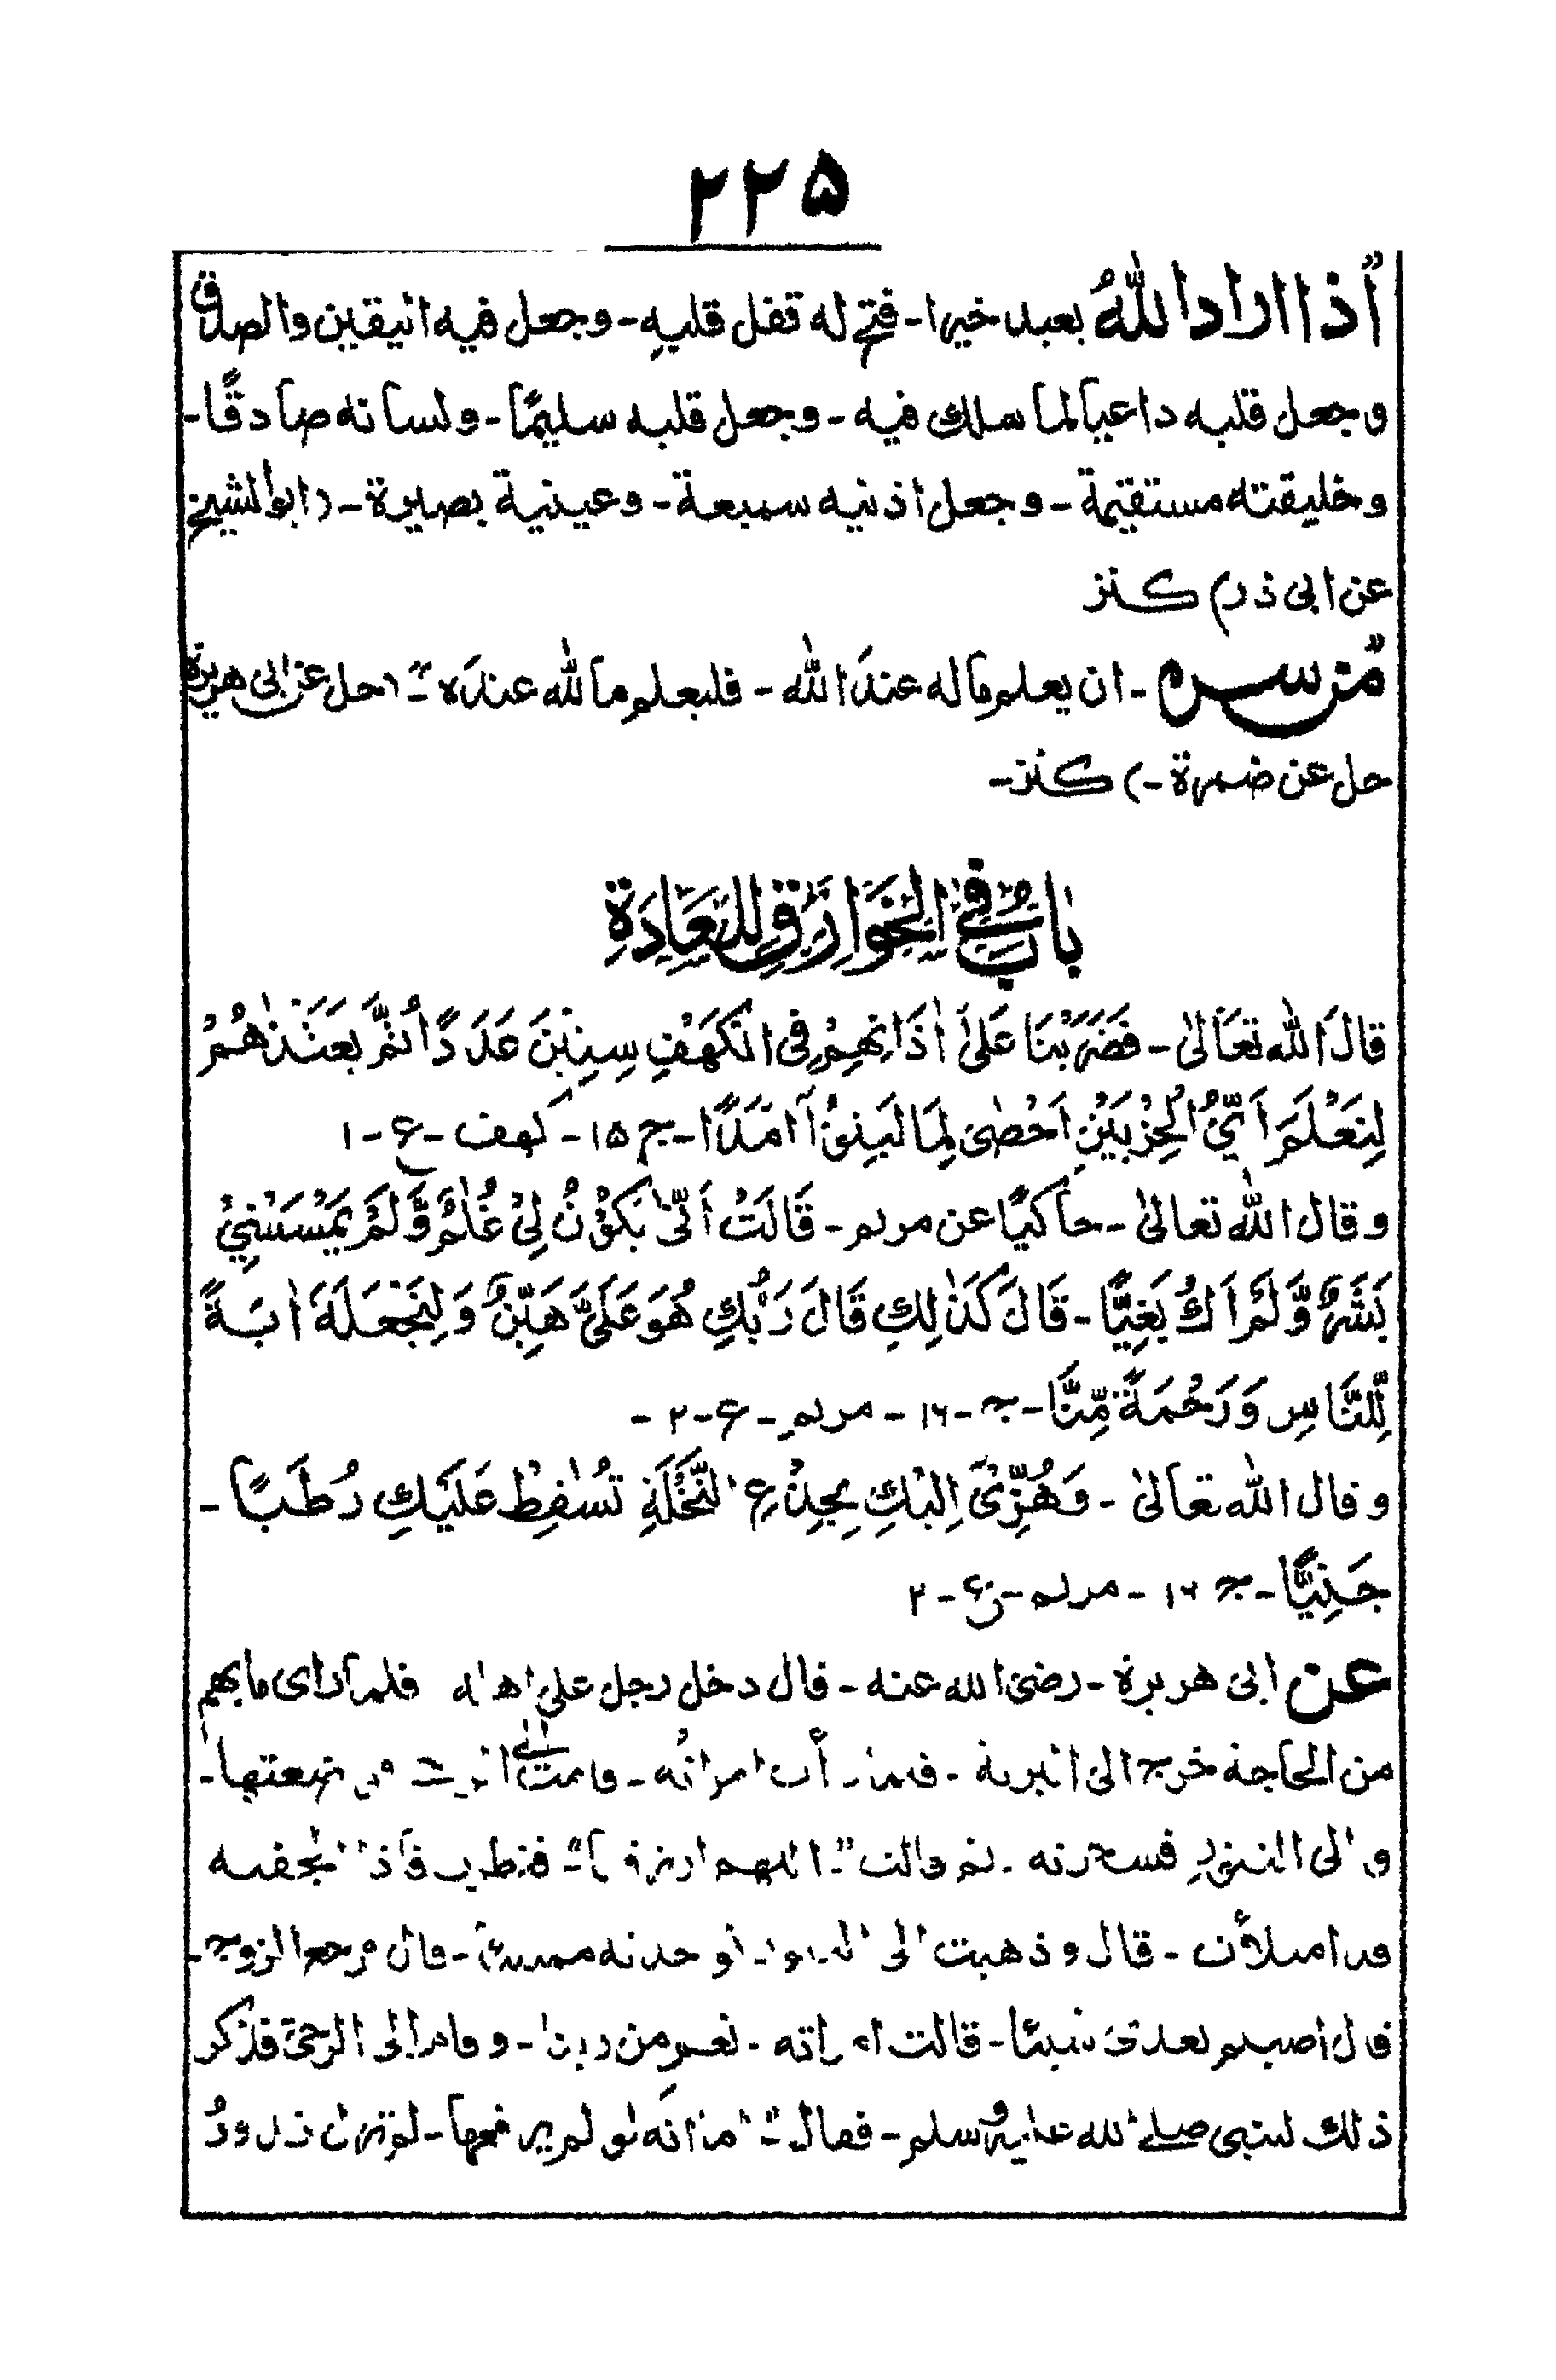 ۲۲۵
"اذا اراد اللهُ بعبد خيرا- فتح له قفل قلبهِ- وجعل فيه اليقين والصدق
وجعل قلبه داعيا لما سلك فيه- وجعل قلبه سليمًا- ولسانه صادقًا-
وخليقته مستقيمة- وجعل اذنيه سميعة- وعينية بصيرة- (ابو الشيخ
عن ابى ذر) كنز
"من سره- ان يعلم ما له عندَ الله- فليعلم ما لله عندَه"- (حل عن ابى هريرة
حل عن ضمرة-) كنز-
بابٌ فِى الخَوَارِقِ لِلعَادَةِ
قالَ الله تعَالىٰ- فَضَرَبْنَا عَلىٰ اٰذَانِهِمْ فِى الْكَهَفِ سِنِيْنَ عَدَدًا ثُمَّ بَعَثْنٰهُمْ
لِنَعْلَمَ اَىُّ الْحِزْبَيْنِ اَحْصٰى لِمَا لَبِثُوْآ اَمَدًا- ج ۱۵- كهف- ع- ۱
وقال الله تعالىٰ- حاكيًا عن مريم- قَالَتْ اَنّىٰ يَكُوْنُ لِىْ غُلٰمٌ وَّلَمْ يَمْسَسْنِىْ
بَشَرٌ وَّلَمْ اَكُ بَغِيًّا- قَالَ كَذٰلِكِ قَالَ رَبُّكِ هُوَ عَلَىَّ هَيِّنٌ وَلِنَجْعَلَهَ اٰيَةً
لِّلنَّاسِ وَرَحْمَةً مِّنَّا- ج- ۱۶- مريم- ع- ۲-
وقال الله تعالىٰ- وَهُزِّىْ اِلَيْكِ بِجِذْعِ النَّخْلَةِ تُسٰقِطْ عَلَيْكِ رُطَبًا-
جَنِيًّا- ج ۱۶- مريم- ع- ۲
عن ابى هريرة- رضى الله عنه- قال دخل رجل على اهله فلما راى ما بهم
من الحاجة خرج الى البرية- فلما رأت امراته- قامت الى الرحى فوضعتها-
والى التنور فسجرته- ثم قالت"- اللهم ارزقنا"- فنظرت فاذا الجفنة
قد امتلأت- قال وذهبت الى التنور فوجدته ممتلئا- قال فرجع الزوج-
قال اصبتم بعدى شيئا- قالت امراته- نعم من ربنا- وقام الى الرحى فذكر
ذلك للنبى صلى الله عليه وسلم- فقال"- اما انه لو لم يرفعها- لم تزل تدورُ